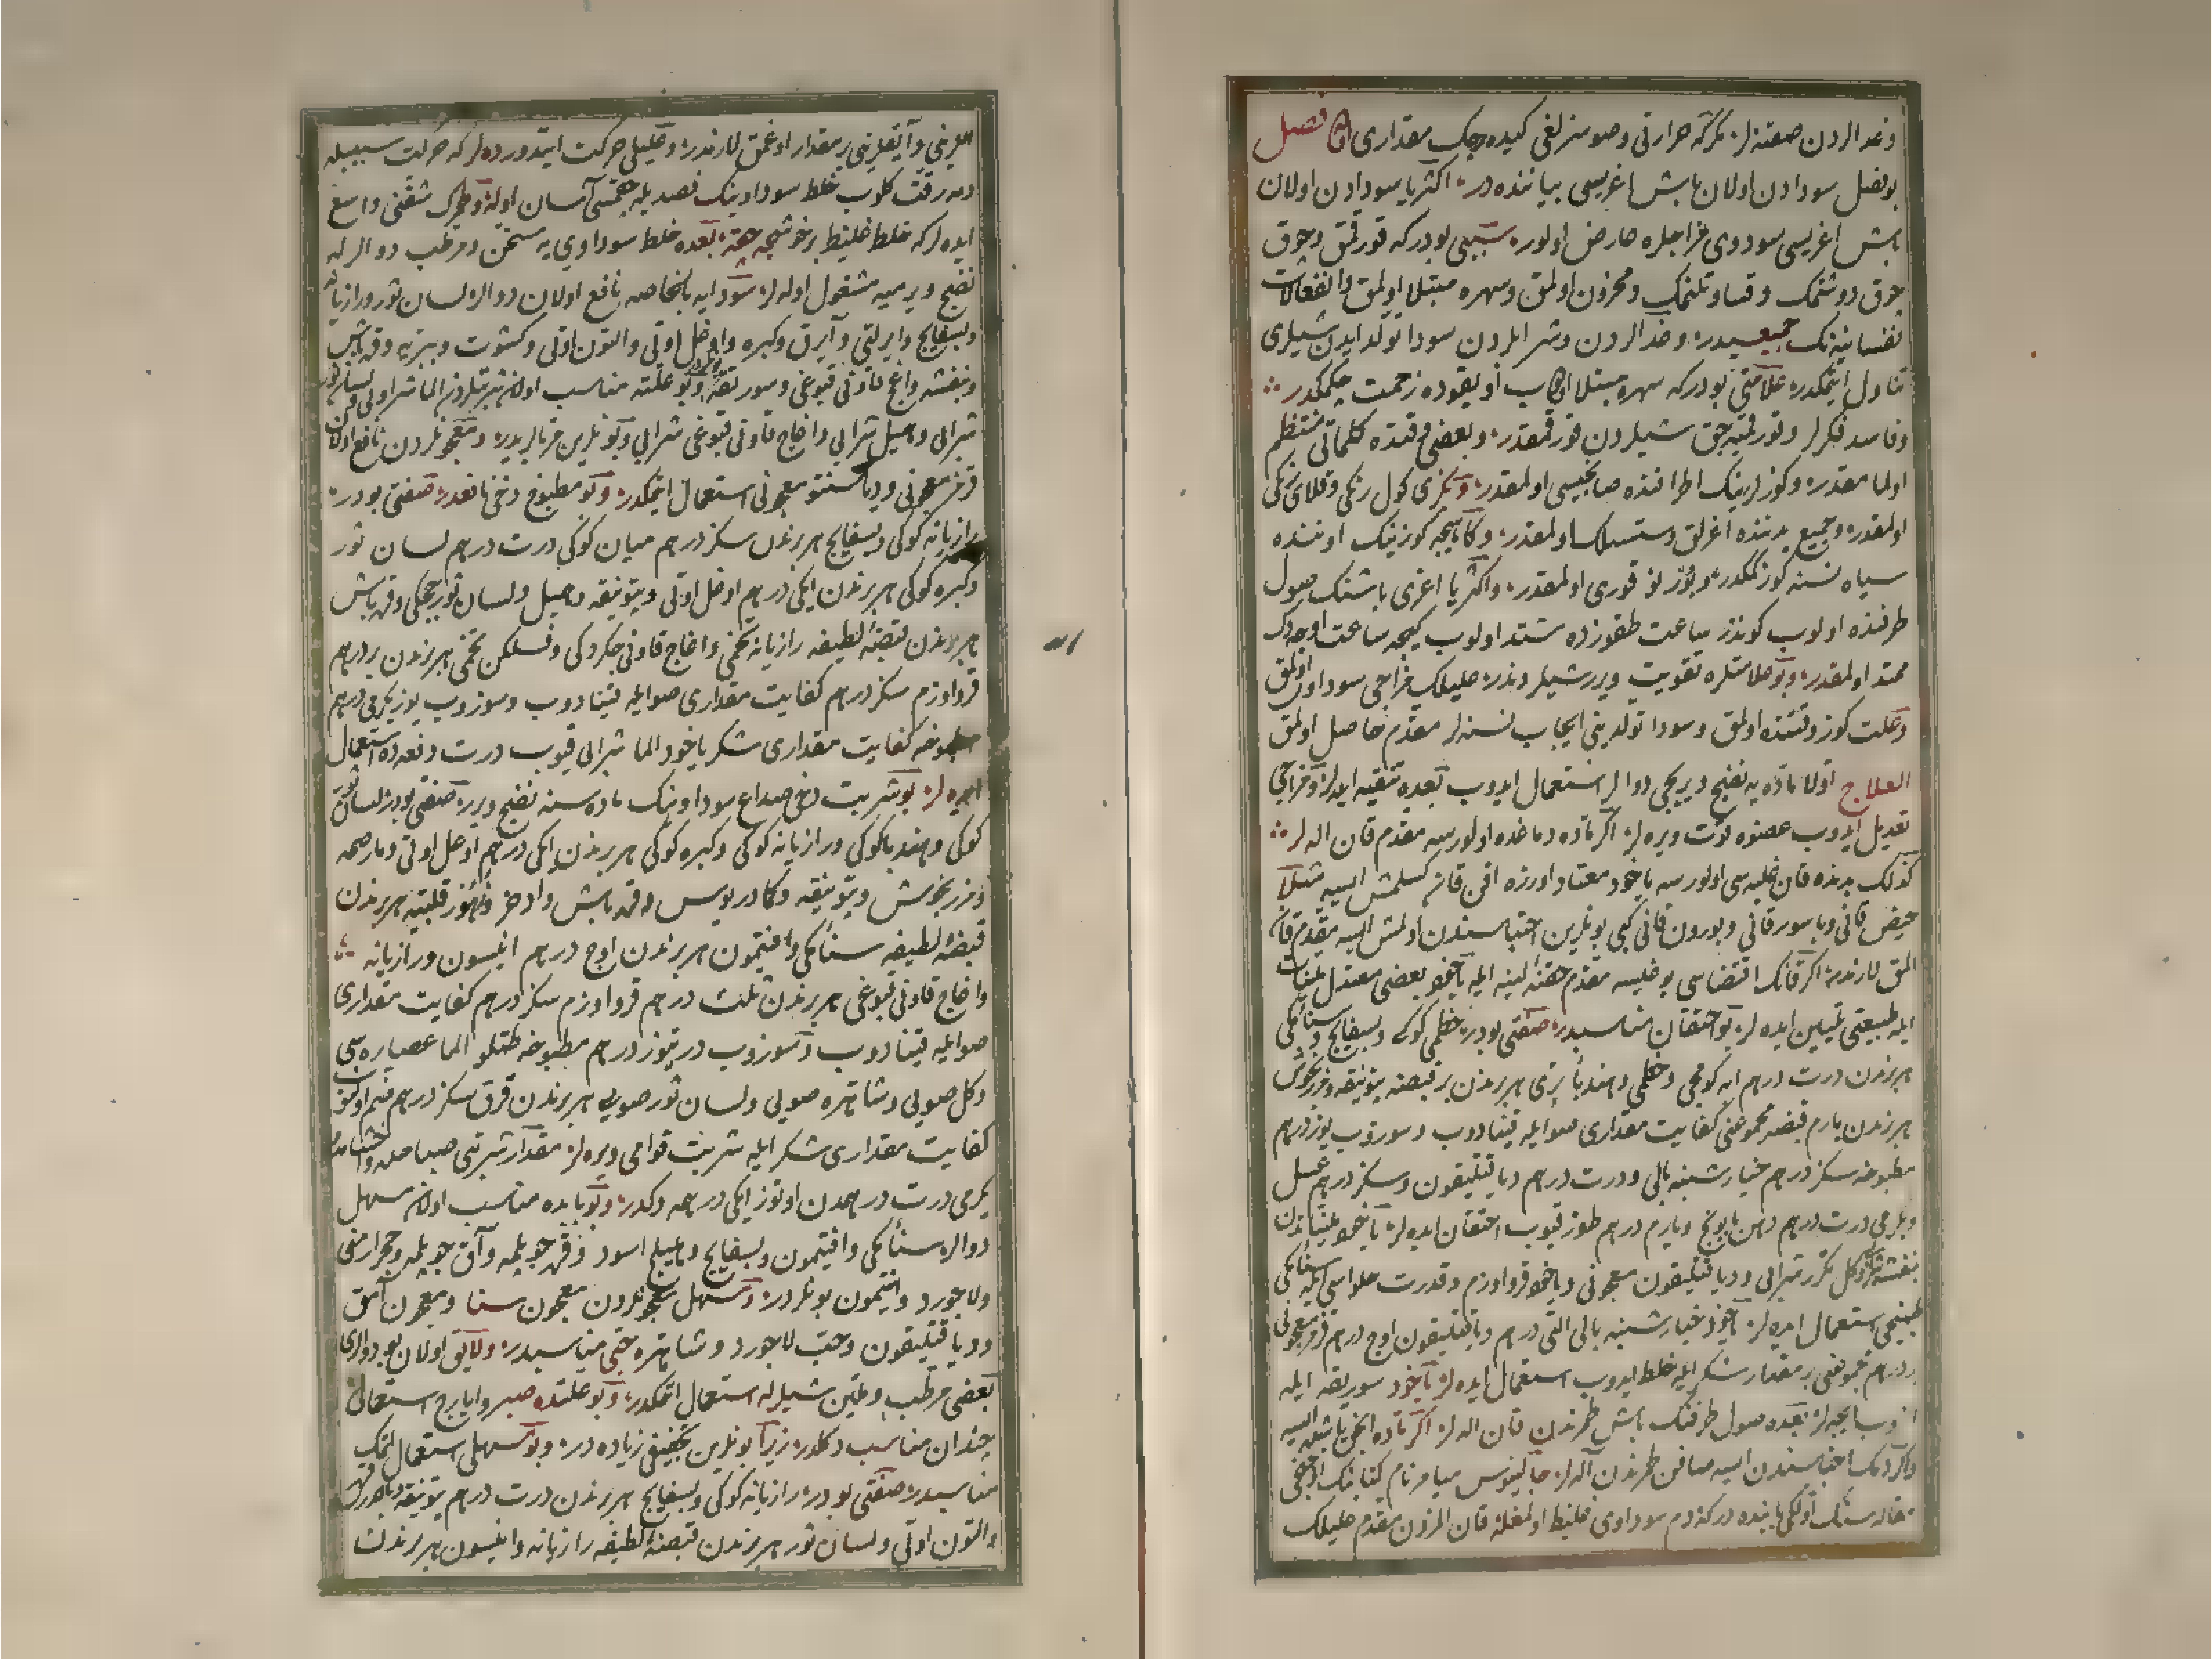 وغدالردن صقنه لر مكركه حرارتی وصوسزلغی كیده جك مقداری اوله فصل
بو فصل سودادن اولان باش اغریسی بیاننده در اكثریا سودادن اولان
باش اغریسی سوداوی مزاجلره عارض اولور سببی بودركه قورقمق وچوق
چوق دوشنمك وقساوتلنمك ومحزون اولمق وسهره مبتلا اولمق وانفعالات
نفسانیه نك جمیعیسیدر وغدالردن وشرابلردن سودا تولد ایدن شیلری
تناول ایتمكدر علامتی بودركه سهره مبتلا اولوب اویقوده زحمت چكمكدر
وفاسد فكرلر وقورقمیه جق شیلردن قورقمقدر وبعضی وقتده كلماتی منتظم
اولمامقدر وكوزلرینك اطرافنده صابحیسی اولمقدر وبكزی كول رنكی وقلای رنكی
اولمقدر وجمیع بدننده اغرلق وسستلك اولمقدر وكاهیجه كوزینك اوكنده
سیاه نسنه كورنمكدر وبورنو قوری اولمقدر واكثریا اغری باشنك صول
طرفنده اولوب كوندز ساعت طقوزده مشتد اولوب كیجه ساعت اوجه دك
ممتد اولمقدر وبو علامتلره تقویت ویرر شیلردندر علیلك مزاجی سوداوی اولمق
وعلت كوز وقتنده اولمق وسودا تولدینی ایجاب نسنه لر مقدم حاصل اولمق
العلاج اولا ماده یه نضج ویریجی دوالر استعمال ایدوب بعده تنقیه ایده لر ومزاجی
تعدیل ایدوب عضوه قوت ویره لر اكر ماده دماغده اولورسه مقدم قان اله لر
كذلك بدنده قان غلبه سی اولورسه یاخود معتاد اوزره اقن قانلر كسلمش ایسه مثلا
حیض قانی وباسور قانی وبورون قانی كبی بونلرین احتباسندن اولمش ایسه مقدم قان
المق لازمدر اكر قانك اقتضاسی یوغیسه مقدم حقنه لینه ایله یاخود بعضی معتدل ملینات
ایله طبیعتی تلیین ایده لر بو احتقان مناسبدر صفتی بودر خطمی كوكی وبسفایج وسنامكی
هربرندن درت درهم ابه كومجی وخطمی وهندبا برقی هربرندن بر قبضه بتونیقه ومرزنجوش
هربرندن یارم قبضه مجموعنی كفایت مقداری صوایله قینادوب وسوزوب یوز درهم
مطبوخه سكز درهم خیارشنبه بالی ودرت درهم دیافتلیقون وسكز درهم عسل
ویكرمی درت درهم دهن بابونج ویارم درهم طوز قیوب احتقان ایده لر یاخود ملیناتدن
بنفشه وكل مكرر شرابی ودیافتلیقون معجونی ویاخود قرو اوزم وقدرت حلواسی ایله سنامكی
طبیخی استعمال ایده لر یاخود خیارشنبه بالی التی درهم ودیافتلیقون اوج درهم قرمز معجونی
بر درهم مجموعنی بر مقدار شكر ایله خلط ایدوب استعمال ایده لر یاخود سوریقه ایله
ازوب ایچه لر بعده صول طرفنك باش طمرندن قان اله لر اكر ماده انجق باشده ایسه
واكر دمك احتباسندن ایسه صافن طمرندن اله لر جالینوس میامر نام كتابنك اونجی
مقاله سنك اولكی بابنده دركه دم سوداوی غلیظ اولمغله قان المزدن مقدم علیلك
اللرینی وایقلرینی بر مقدار اوغمق لازمدر وعلیلی حركت ایتدوره لر كه حركت سببیله
دمه رقت كلوب خلط سوداوینك فصد ایله چقمسی آسان اوله وطمرك شقنی واسع
ایده لر كه خلط غلیظ برخوشجه چقه بعده خلط سوداوی یه مسخن ومرطب دوالر له
نضج ویرمیه مشغول اوله لر سودایه بالخاصه نافع اولان دوالر لسان ثور ورازیانه
وبسفایج وایرلتی وآیرق وكبره واوغل اوتی والتون اوتی وكشوت وبتونیه وقره باش
وبنفشه واغاج قاونی قبوغی وسوریقه در وبو علته مناسب اولان شربتلردن الما شرابی ولسان ثور
شرابی وهلیل شرابی واغاج قاونی قبوغی شرابی وبونلرین امثالیدر ومعجونلردن نافع اولان
قرمز معجونی ودیاسنتو معجونی استعمال ایتمكدر وبو مطبوخ دخی نافعدر صفتی بودر
رازیانه كوكی وبسفایج هربرندن سكز درهم میان كوكی درت درهم لسان ثور
وكبره كوكی هربرندن ایكی درهم اوغل اوتی وبتونیقه وهلیل ولسان ثور چیچكی وقره باش
هربرندن قبضه لطیفه رازیانه تخمی واغاج قاونی چكردكی وفسلكن تخمی هربرندن بر درهم
قرو اوزم سكز درهم كفایت مقداری صوایله قینادوب وسوزوب یوز یكرمی درهم
مطبوخه كفایت مقداری شكر یاخود الما شرابی قیوب درت دفعه ده استعمال
ایده لر بو شربت دخی صداع سوداوینك ماده سنه نضج ویرر صفتی بودر لسان ثور
كوكی وهندبا كوكی ورازیانه كوكی وكبره كوكی هربرندن ایكی درهم اوغل اوتی
ومرزنجوش وبتونیقه وكمادریوس وقره باش واذخر هربرندن
قبضه لطیفه سنامكی وافتیمون هربرندن اوج درهم انیسون ورازیانه
واغاج قاونی قبوغی هربرندن ثلث درهم قرو اوزم سكز درهم كفایت مقداری
صوایله قینادوب وسوزوب دریوز درهم مطبوخه طتلو الما عصاره سی
وكل صویی وشاهتره صویی ولسان ثور صویی هربرندن قرق سكز درهم ضم اولنوب
كفایت مقداری شكر ایله شربت قوامی ویره لر مقدار شربتی صباحله واخشامله
یكرمی درت درهمدن اوتوز ایكی درهمه دكدر وبو بابده مناسب اولان مسهل
دوالر سنامكی وافتیمون وبسفایج وهلیلج اسود وقره چوپلمه وآق چوپلمه وحجر ارمنی
ولاجورد وافتیمون بونلردر ومسهل معجونلردن معجون سنا ومعجون آمق
ودیافتلیقون وحب لاجورد وشاهتره حبی مناسبدر ولایق اولان بو دوالری
بعضی مرطب وملین شیلرله استعمال ایتمكدر وبو علتده صبر وایارج استعمالی
چندان مناسب دكلدر زیرا بونلرین تجفیفی زیاده در وبو مسهلی استعمال ایتمك
مناسبدر صفتی بودر رازیانه كوكی وبسفایج هربرندن درت درهم بتونیقه
والتون اوتی ولسان ثور هربرندن قبضه لطیفه رازیانه وانیسون هربرندن